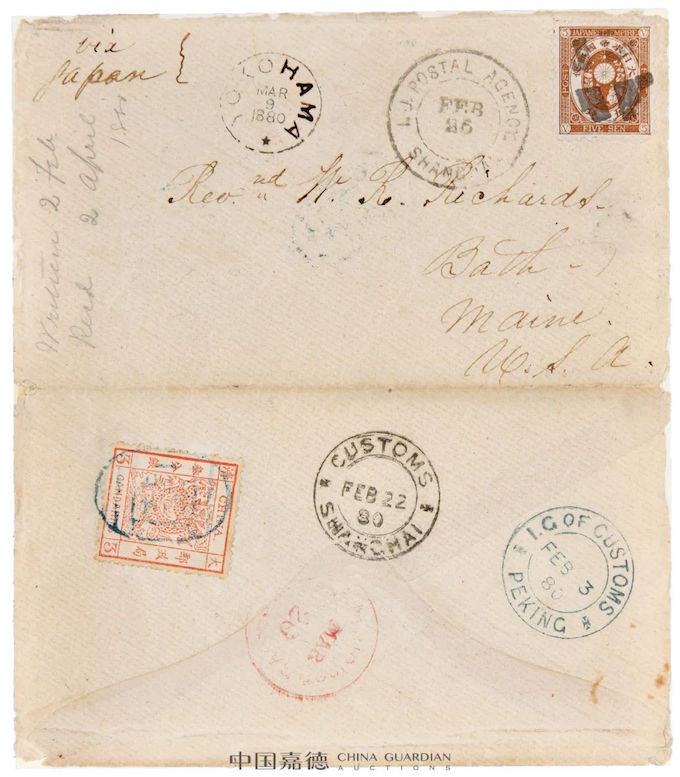 via
Japan
YOKOHAMA
MAR
9
1880
I.J. POSTAL AGENCY
FEB
SHANGHAI
JAPANESE EMPIRE
POST
FIVE SEN
V
5
Written 2 Feb
Recd 2 April
Revnd W. R. Richards.
Bath -
Maine.
U. S. A.
CHINA
CANDARIN
5
大
清
郵政局
CUSTOMS
FEB 22
80
SHANGHAI
I.G. OF CUSTOMS
FEB 3
80
PEKING
MAR
中国嘉德 CHINA GUARDIAN
AUCTIONS